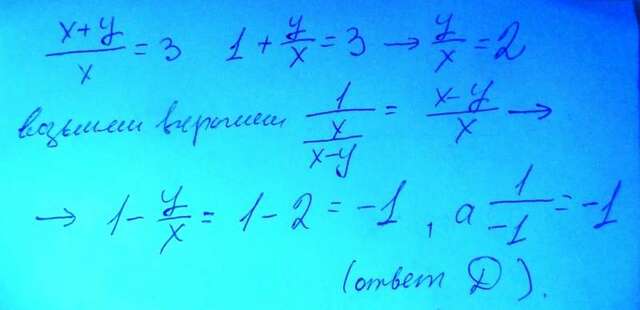 (x+y)/x = 3   1 + y/x = 3 → y/x = 2
возьмем 1/(x/(x-y)) = (x-y)/x →
→ 1 - y/x = 1 - 2 = -1, а 1/-1 = -1
(ответ D).